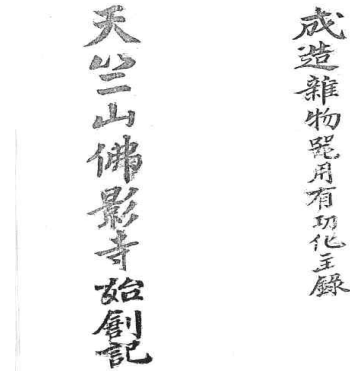 成造雜物器用有功化主錄
天竺山佛影寺始創記